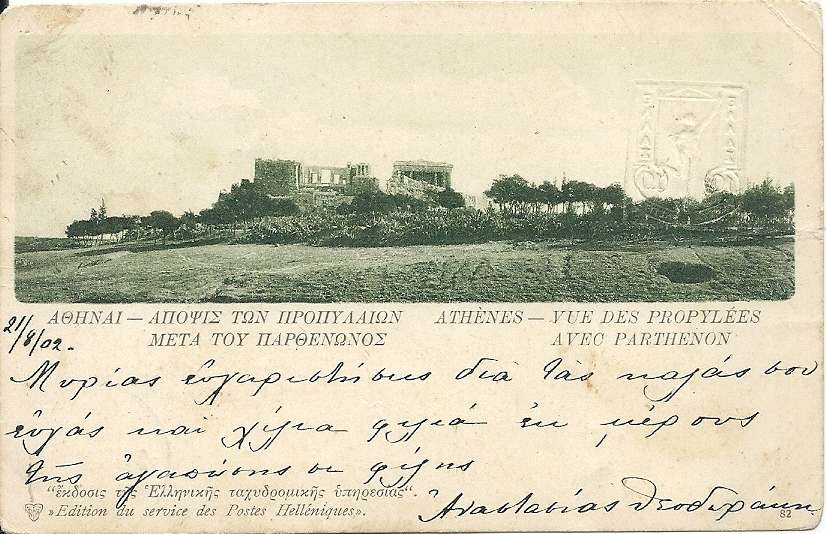 ΑΘΗΝΑΙ — ΑΠΟΨΙΣ ΤΩΝ ΠΡΟΠΥΛΑΙΩΝ
ΜΕΤΑ ΤΟΥ ΠΑΡΘΕΝΩΝΟΣ
ATHÈNES — VUE DES PROPYLÉES
AVEC PARTHENON
21/8/02.
Μυρίας εὐχαριστήσεις διὰ τὰς καλάς σου
εὐχάς καὶ χίλια φιλιά ἐκ μέρους
τῆς ἀγαπώσης σε φίλης
Ἀναστασίας Θεοδωράκη
“ἔκδοσις τῆς Ἑλληνικῆς ταχυδρομικῆς ὑπηρεσίας”.
»Edition du service des Postes Helléniques».
82
ΕΛΛΑΣ